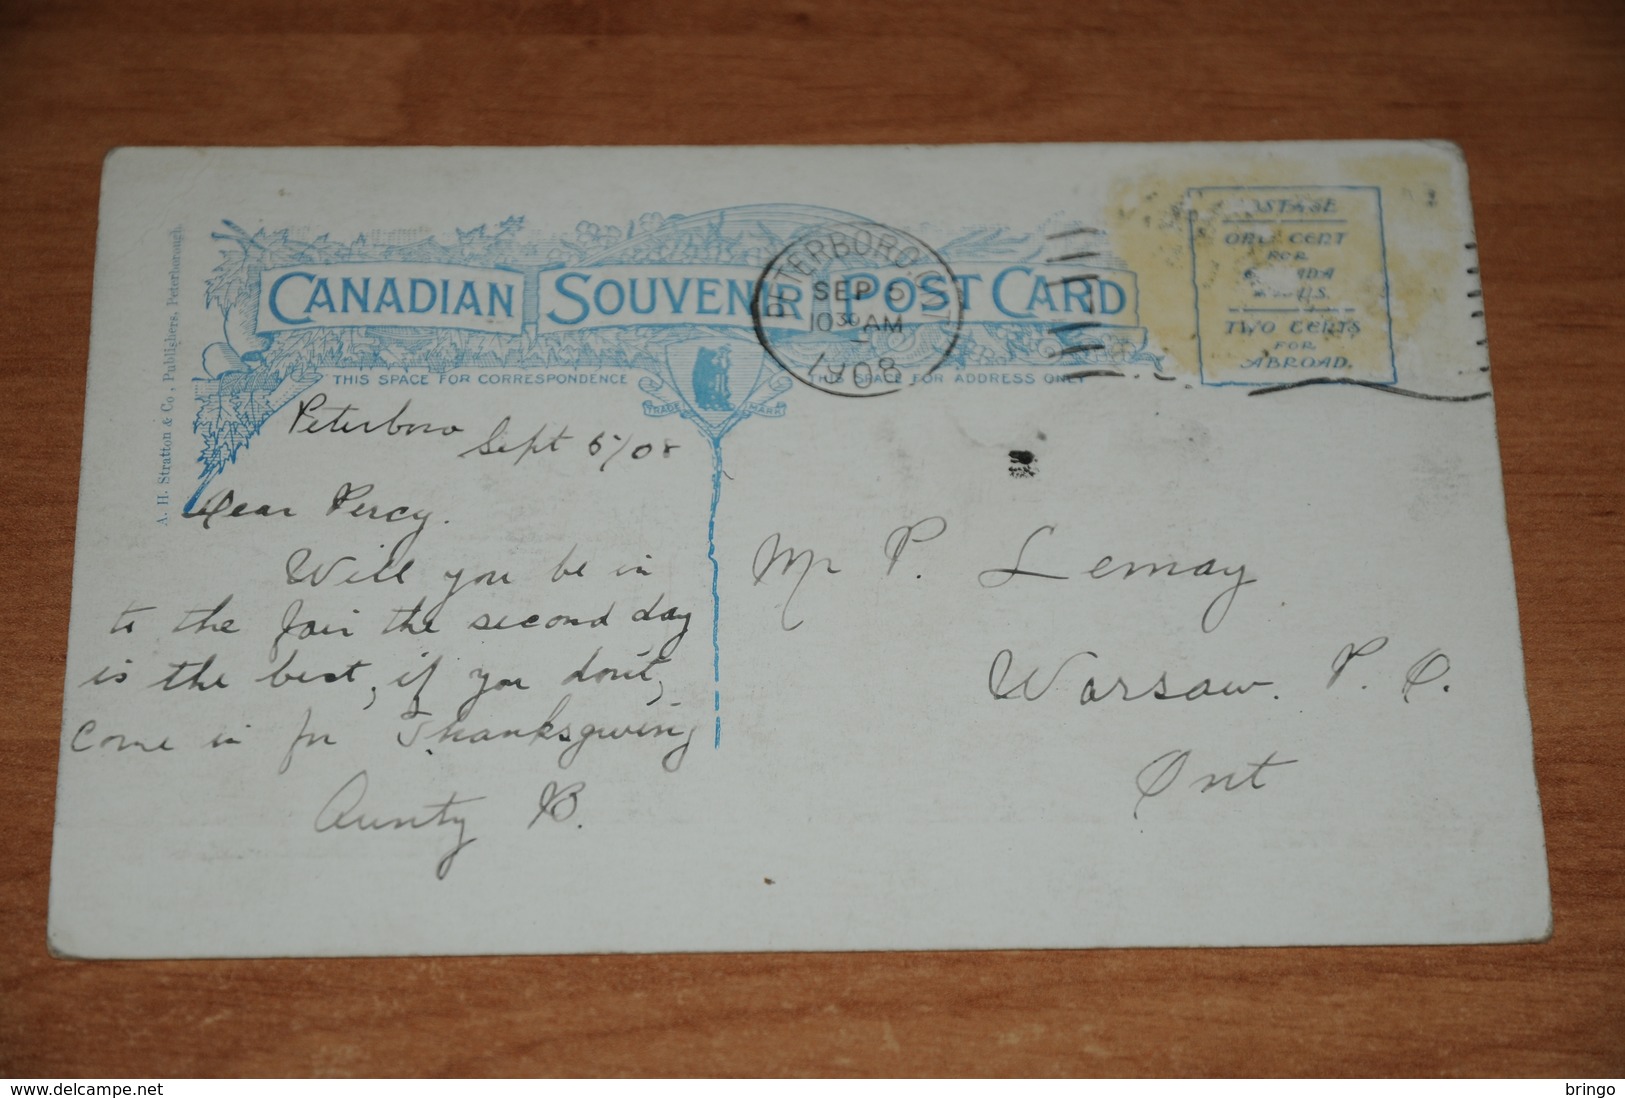 CANADIAN SOUVENIR POST CARD
THIS SPACE FOR CORRESPONDENCE
THIS SPACE FOR ADDRESS ONLY
TRADE MARK
A. H. Stratton & Co., Publishers, Peterborough.
PETERBORO. ONT
SEP 5
10 30 AM
1908
POSTAGE
ONE CENT
FOR
CANADA
TWO CENTS
FOR
ABROAD.
Peterboro
Sept 5/08
Dear Percy.
Will you be in
to the fair the second day
is the best, if you don't,
come in for Thanksgiving
Aunty B.
Mr P. Lemay
Warsaw. P. O.
Ont
www.delcampe.net
bringo